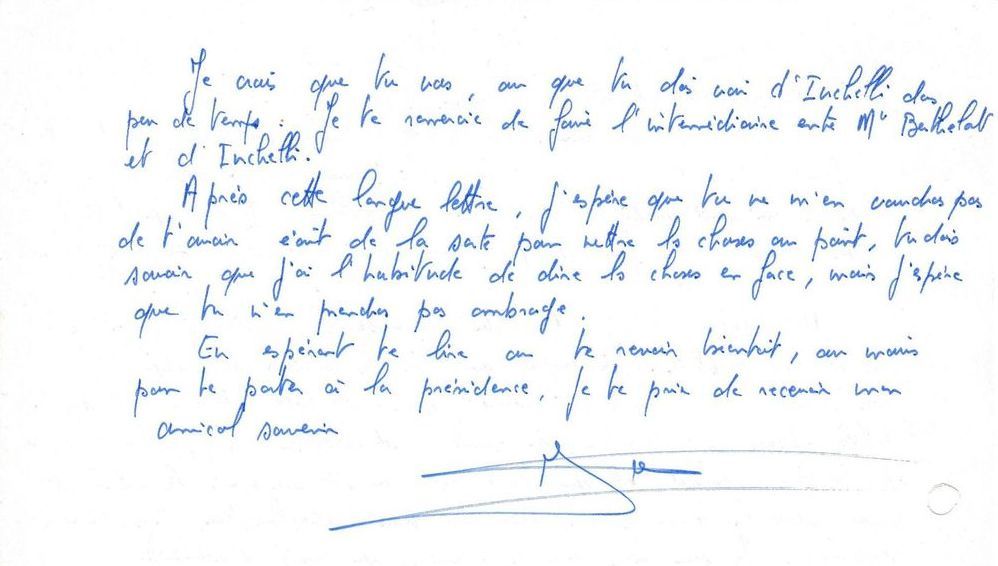 Je crois que tu vas, ou que tu dois voir d'Inchelli dans
peu de temps. Je te remercie de faire l'intermédiaire entre Mr Berthelot
et d'Inchelli.
Après cette longue lettre, j'espère que tu ne m'en voudras pas
de t'avoir écrit de la sorte pour mettre les choses au point, tu dois
savoir que j'ai l'habitude de dire les choses en face, mais j'espère
que tu n'en prendras pas ombrage.
En espérant te lire ou te revoir bientôt, au moins
pour te porter à la présidence, je te prie de recevoir mon
amical souvenir